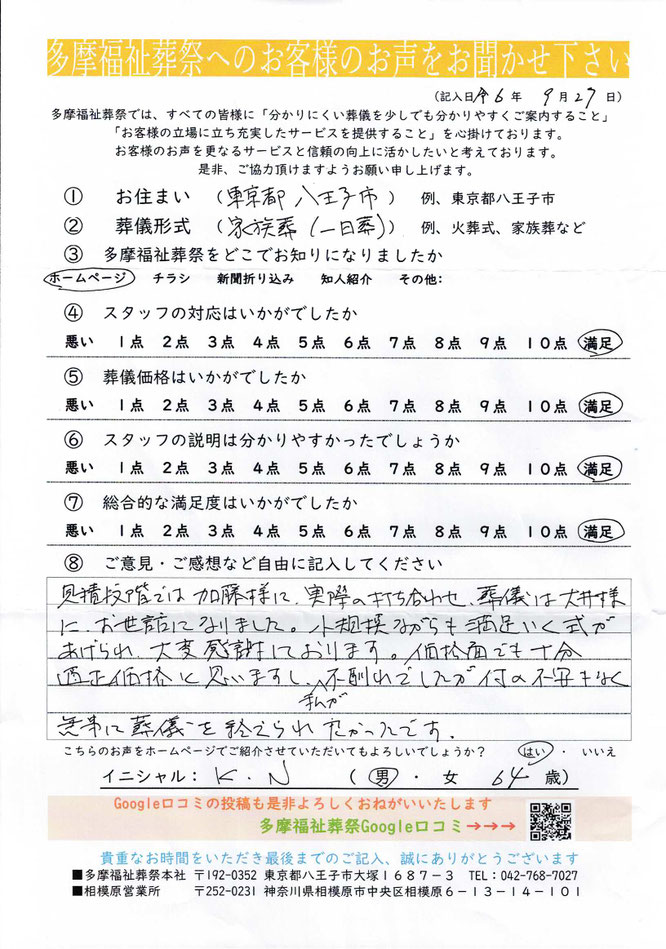 多摩福祉葬祭へのお客様のお声をお聞かせ下さい
（記入日 令6年 9月27日）
多摩福祉葬祭では、すべての皆様に「分かりにくい葬儀を少しでも分かりやすくご案内すること」
「お客様の立場に立ち充実したサービスを提供すること」を心掛けております。
お客様のお声を更なるサービスと信頼の向上に活かしたいと考えております。
是非、ご協力頂けますようお願い申し上げます。
① お住まい （東京都 八王子市） 例、東京都八王子市
② 葬儀形式 （家族葬（一日葬）） 例、火葬式、家族葬など
③ 多摩福祉葬祭をどこでお知りになりましたか
ホームページ チラシ 新聞折り込み 知人紹介 その他：
④ スタッフの対応はいかがでしたか
悪い 1点 2点 3点 4点 5点 6点 7点 8点 9点 10点 満足
⑤ 葬儀価格はいかがでしたか
悪い 1点 2点 3点 4点 5点 6点 7点 8点 9点 10点 満足
⑥ スタッフの説明は分かりやすかったでしょうか
悪い 1点 2点 3点 4点 5点 6点 7点 8点 9点 10点 満足
⑦ 総合的な満足度はいかがでしたか
悪い 1点 2点 3点 4点 5点 6点 7点 8点 9点 10点 満足
⑧ ご意見・ご感想など自由に記入してください
見積段階では加藤様に、実際の打ち合わせ、葬儀は大井様
に、お世話になりました。小規模ながらも満足いく式が
あげられ、大変感謝しております。価格面でも十分
適正価格と思いますし、私が不馴れでしたが何の不安もなく
無事に葬儀を終えられたかったです。
こちらのお声をホームページでご紹介させていただいてもよろしいでしょうか？ はい ・ いいえ
イニシャル： K.N （ 男 ・ 女 64 歳）
Google口コミの投稿も是非よろしくおねがいいたします
多摩福祉葬祭Google口コミ→→→
貴重なお時間をいただき最後までのご記入、誠にありがとうございます
■多摩福祉葬祭本社 〒192-0352 東京都八王子市大塚1687-3 TEL：042-768-7027
■相模原営業所 〒252-0231 神奈川県相模原市中央区相模原6-13-14-101